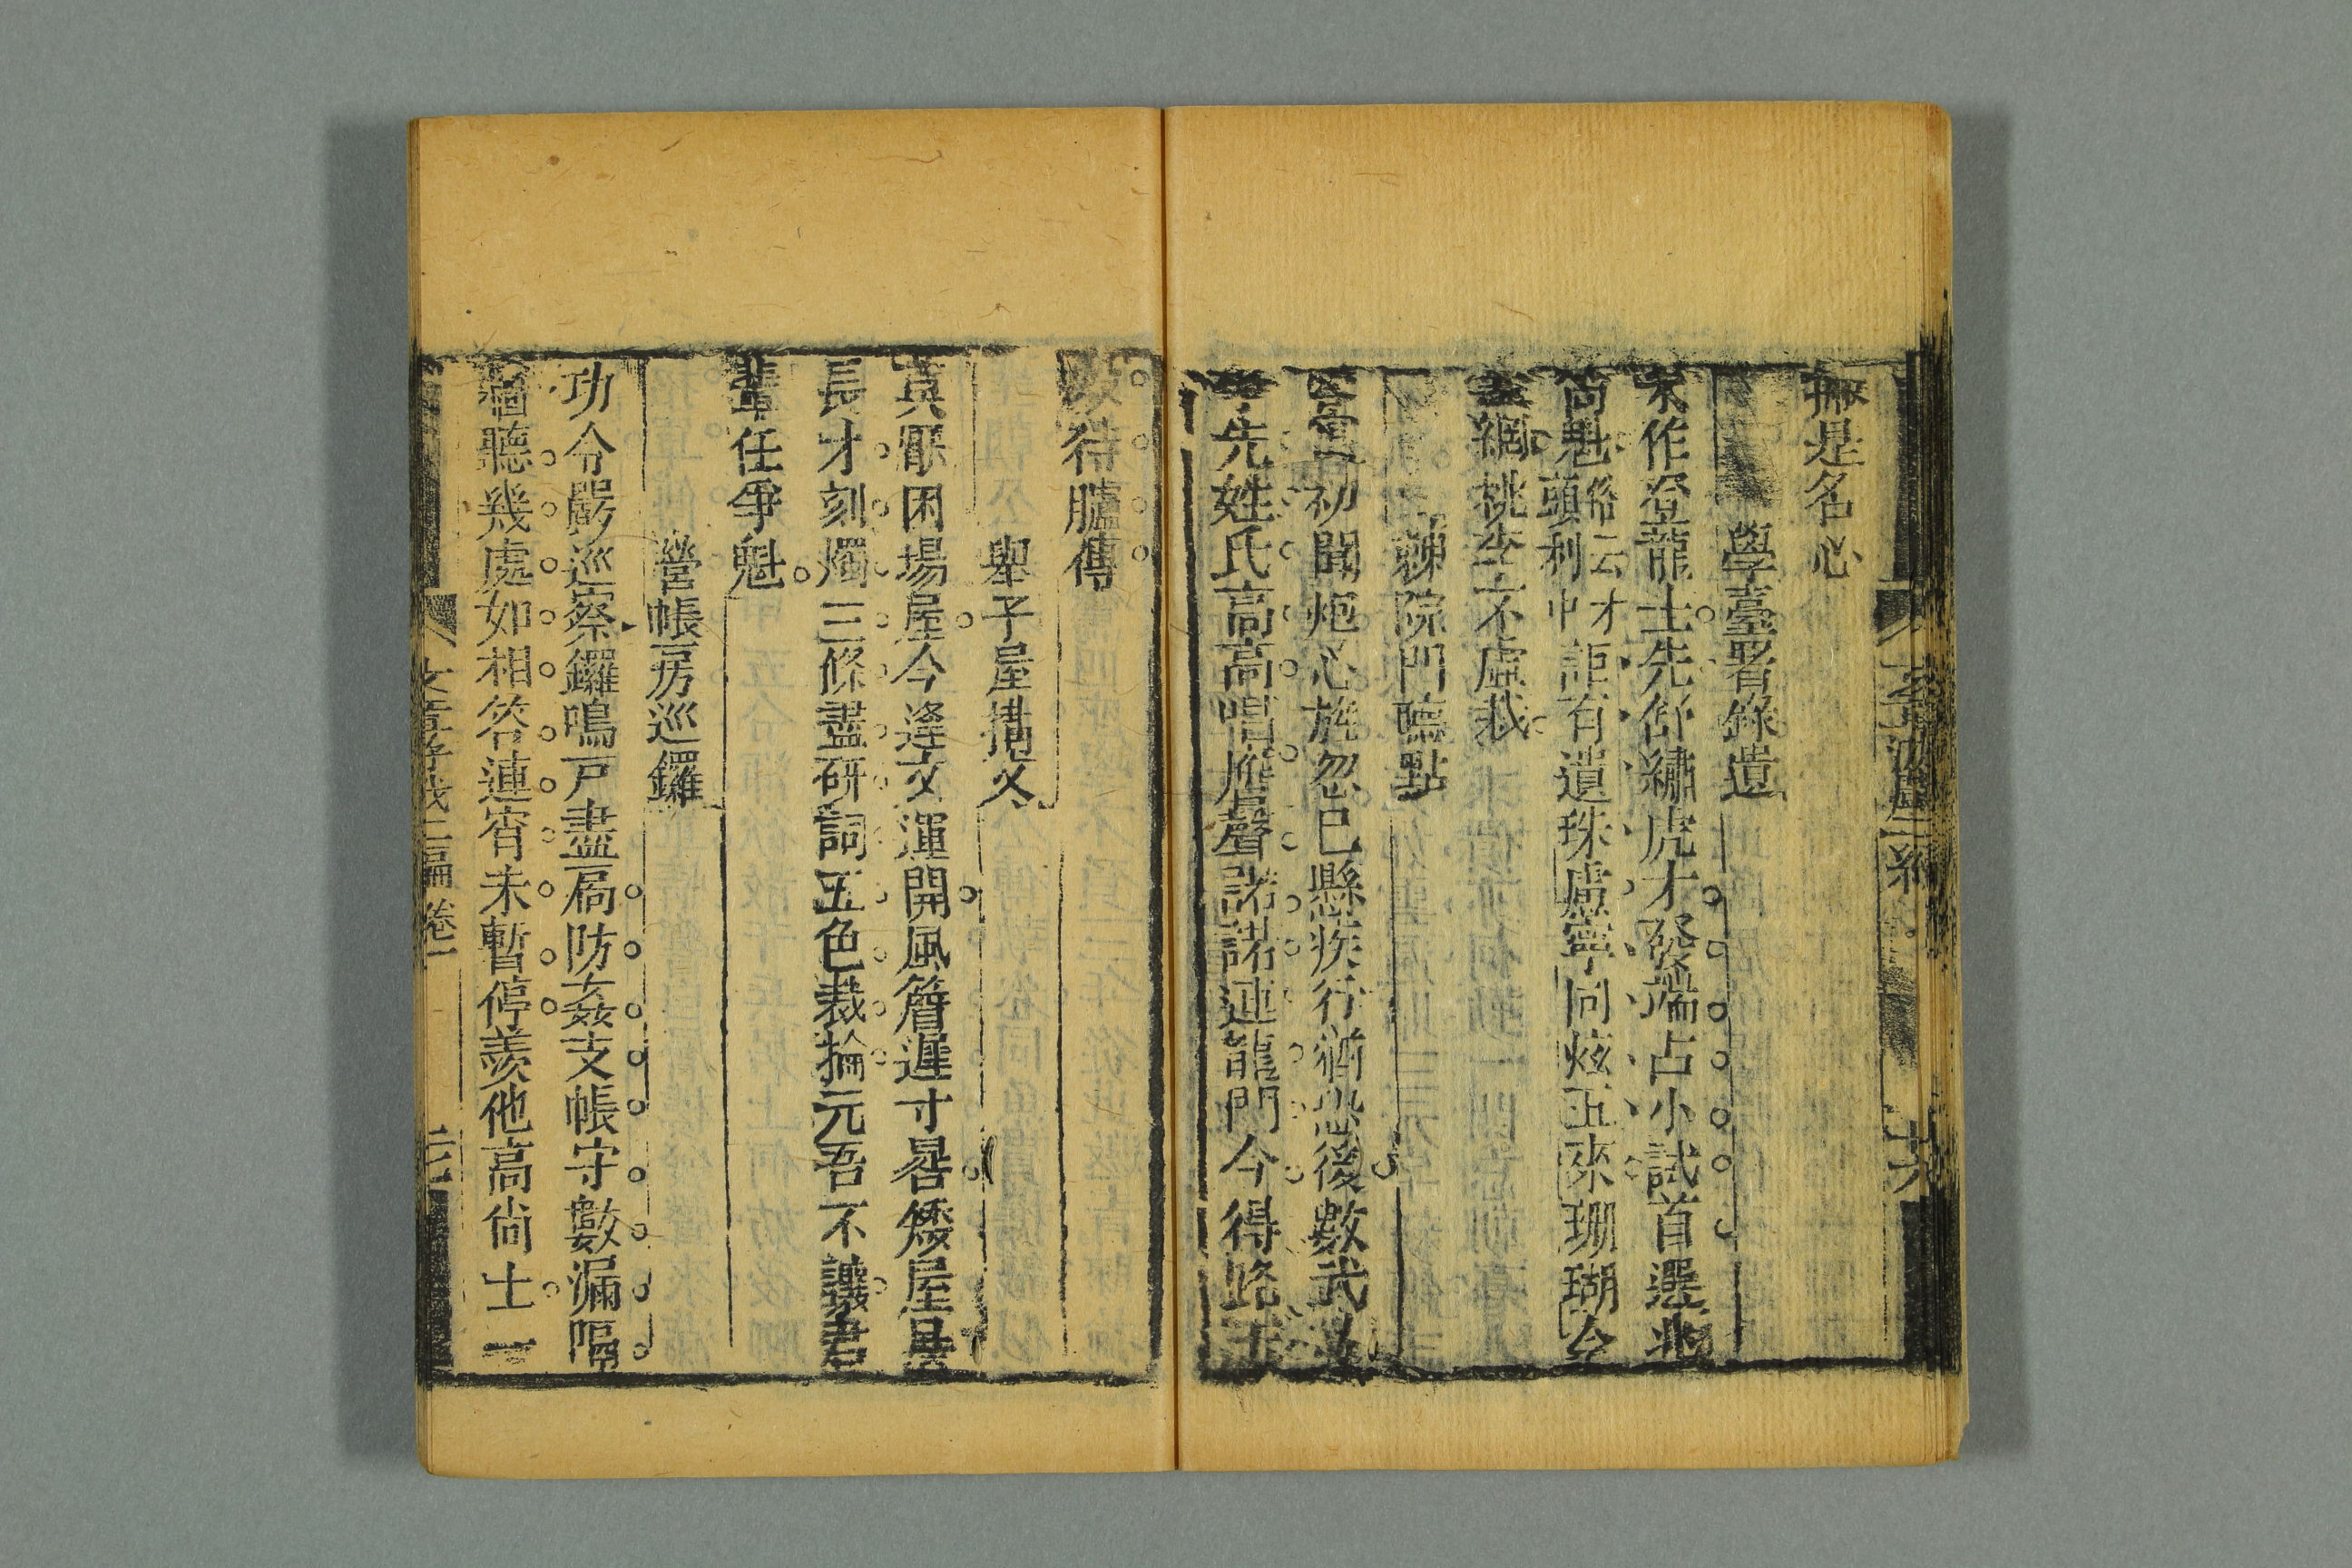 掀是名心
學臺署錄遺
未作登龍士先儕繡虎才發端占小試首選兆
高魁俗云才頭利中詎有遺珠慮寧同炫玉來珊瑚今
盡網桃李不虛栽
轅院門聽點
初聞炮心旌忽已懸疾行猶恐後數武
先姓氏高高唱應聲諾諾連龍門今得路
待臚傳
舉子屋搆文
真厭困場屋今逢文運開風簷遲寸晷矮屋
長才刻燭三條盡硏詞五色裁掄元吾不讓君
輩任爭魁
營帳房巡鑼
功令嚴巡察鑼鳴戸盡扃防姦支帳守數漏隔
牆聽幾處如相答連宵未暫停羨他高尚士一
文章游戲二編 卷一